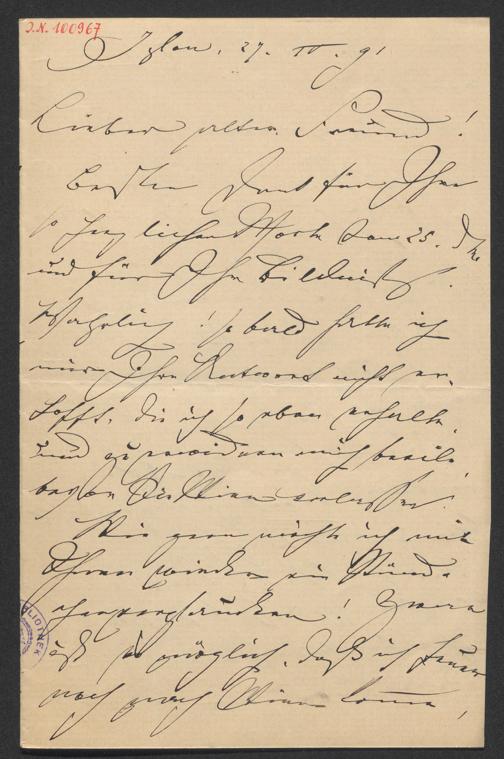 J.N. 100967
Iglau, 27. IV. 91
Lieber alter Freund!
Besten Dank für Ihre
so herzlichen Worte vom 25. d. M.
und für Ihr Bildniß.
Wahrlich! so bald hätte ich
mir Ihre Antwort nicht er-
hofft, die ich so eben erhalte,
und zu erwidern mich beeile
bevor Sie Wien verlassen!
Wie gern möchte ich mit
Ihnen wieder ein Stünd-
chen verplaudern! Zwar
ist es möglich, daß ich heuer
noch nach Wien komme,
BLIOTHEK